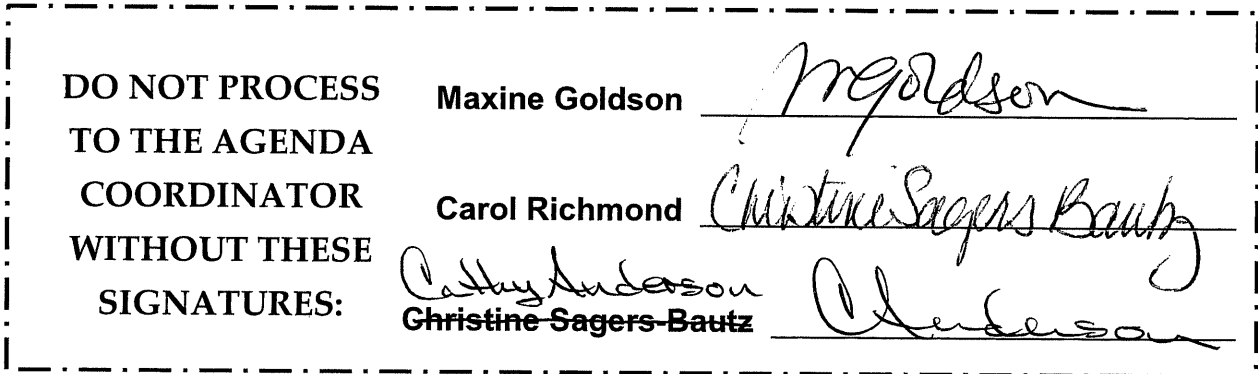 DO NOT PROCESS
TO THE AGENDA
COORDINATOR
WITHOUT THESE
SIGNATURES:
Maxine Goldson MGoldson
Carol Richmond Christine Sagers Bautz
Cathy Anderson
Christine Sagers-Bautz CAnderson